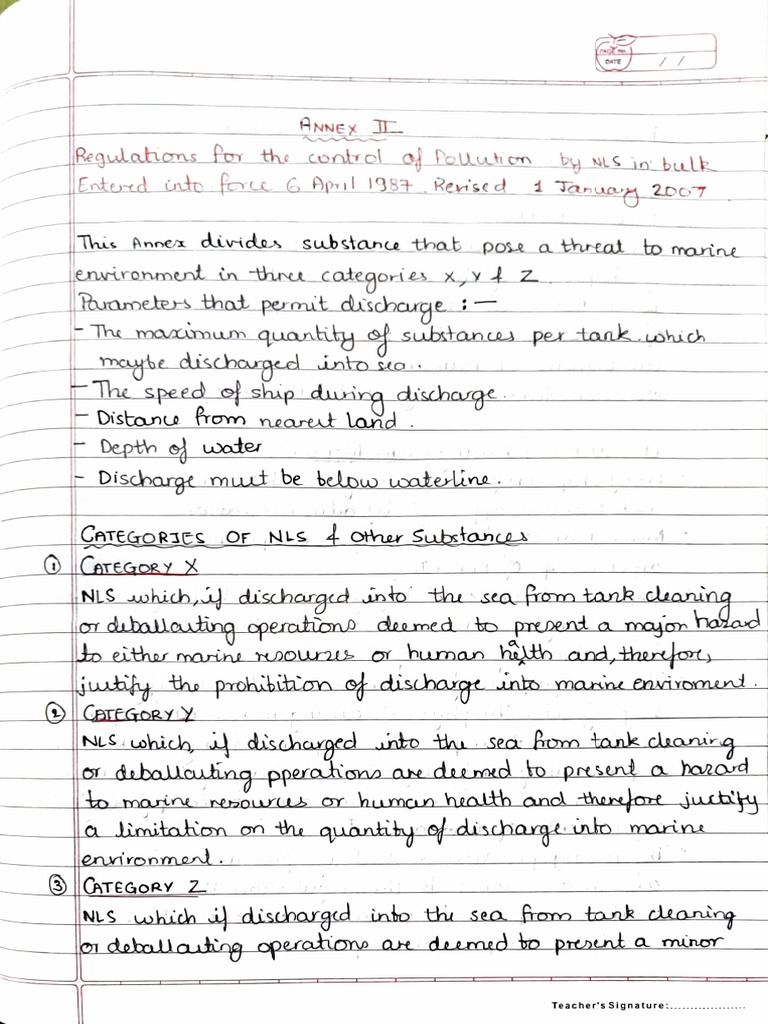 PAGE No.
DATE / /
ANNEX II
Regulations for the control of Pollution by NLS in bulk
Entered into force 6 April 1987. Revised 1 January 2007
This Annex divides substance that pose a threat to marine
environment in three categories X, Y & Z
Parameters that permit discharge :—
- The maximum quantity of substances per tank which
maybe discharged into sea.
- The speed of ship during discharge.
- Distance from nearest land.
- Depth of water
- Discharge must be below waterline.
CATEGORIES OF NLS & Other Substances
① CATEGORY X
NLS which, if discharged into the sea from tank cleaning
or deballasting operations deemed to present a major hazard
to either marine resources or human health and, therefore,
justify the prohibition of discharge into marine enviroment.
② CATEGORY Y
NLS which, if discharged into the sea from tank cleaning
or deballasting pperations are deemed to present a hazard
to marine resources or human health and therefore justify
a limitation on the quantity of discharge into marine
environment.
③ CATEGORY Z
NLS which if discharged into the sea from tank cleaning
or deballasting operations are deemed to present a minor
Teacher's Signature:....................